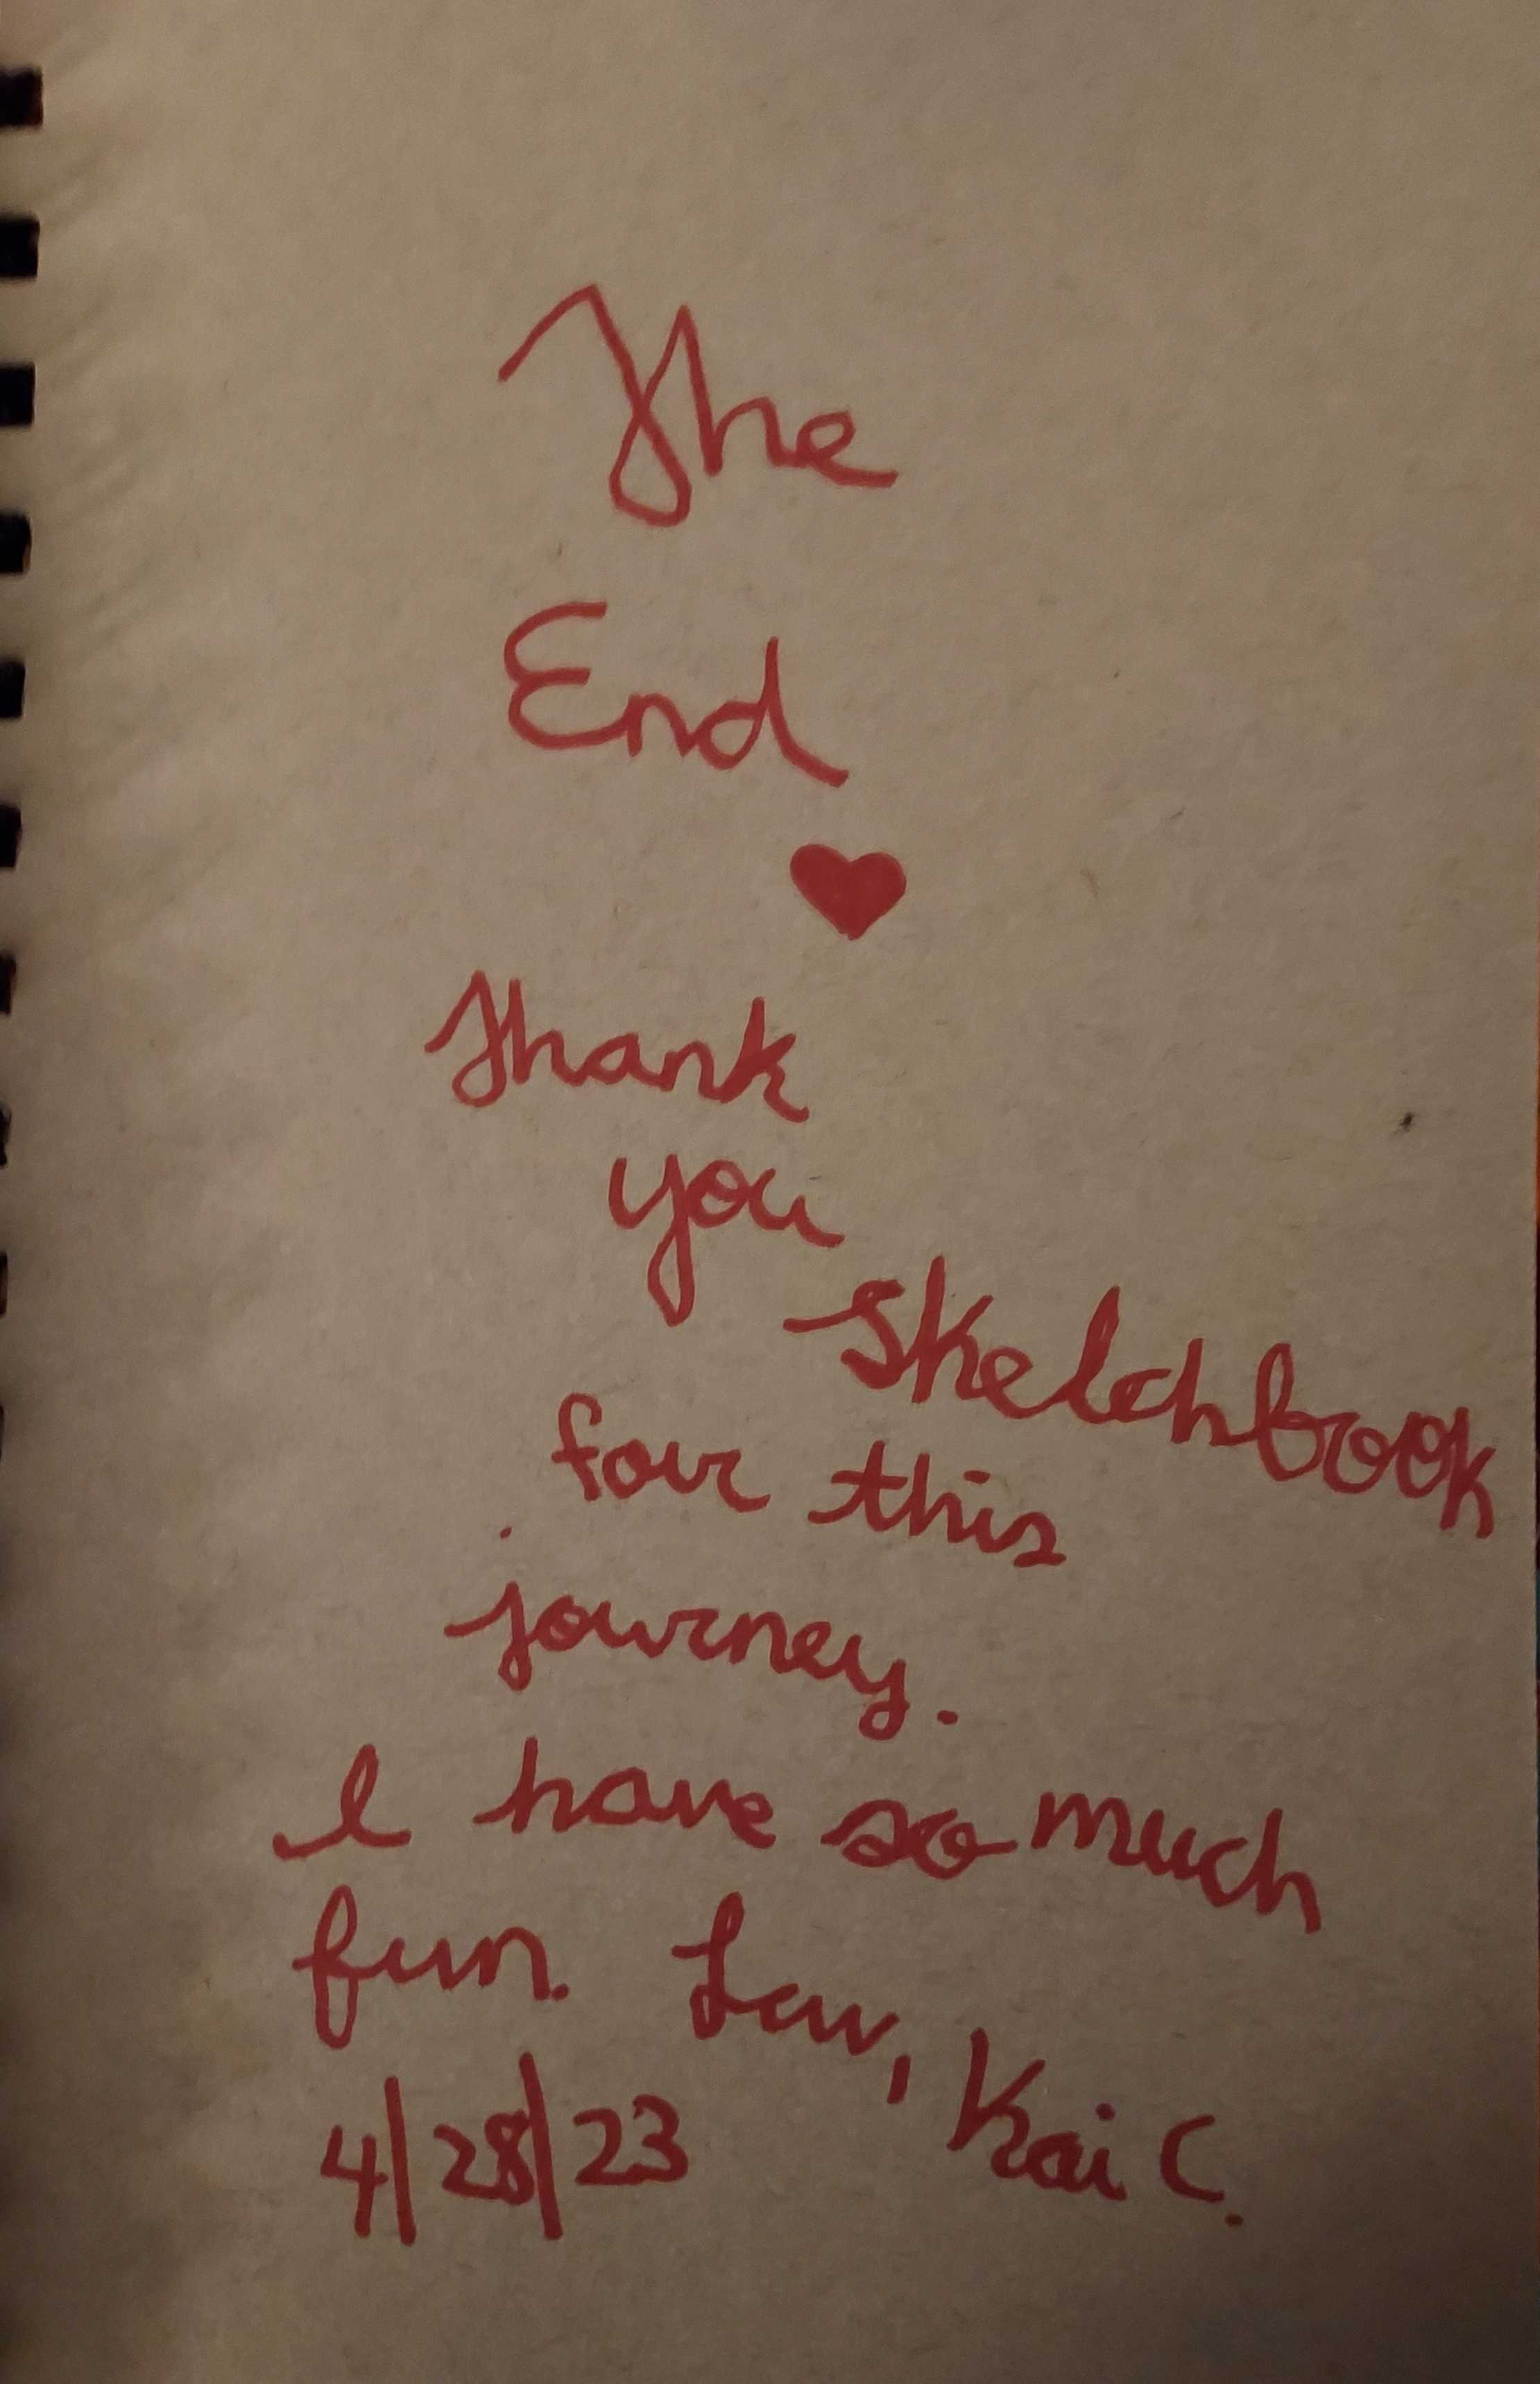 The
End
Thank
you
sketchbook
for this
journey.
I have so much
fun. Luv,
Kai C.
4/28/23